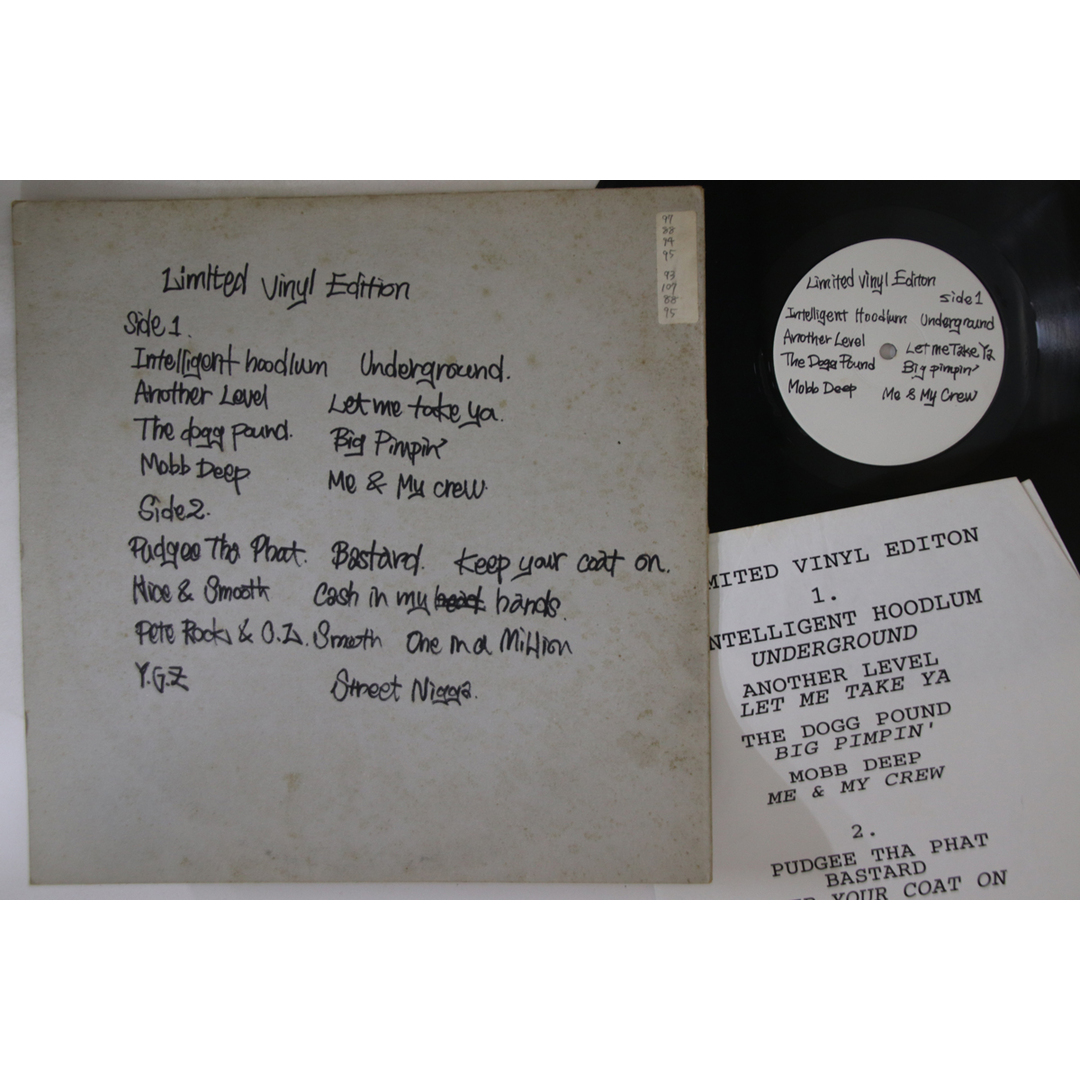 Limited Vinyl Edition
Side 1.
Intelligent hoodlum Underground.
Another Level Let me take ya.
The dogg pound. Big Pimpin'
Mobb Deep Me & My crew.
Side 2.
Pudgee Tha Phat. Bastard. Keep your coat on.
Nice & Smooth Cash in my hands.
Pete Rock & C.L. Smooth One in a Million
Y.G.Z Street Nigga.
97
88
94
95
93
107
88
95
Limited Vinyl Edition
side 1
Intelligent Hoodlum Underground
Another Level Let me Take Ya
The Dogg Pound Big pimpin'
Mobb Deep Me & My Crew
MITED VINYL EDITON
1.
NTELLIGENT HOODLUM
UNDERGROUND
ANOTHER LEVEL
LET ME TAKE YA
THE DOGG POUND
BIG PIMPIN'
MOBB DEEP
ME & MY CREW
2.
PUDGEE THA PHAT
BASTARD
YOUR COAT ON